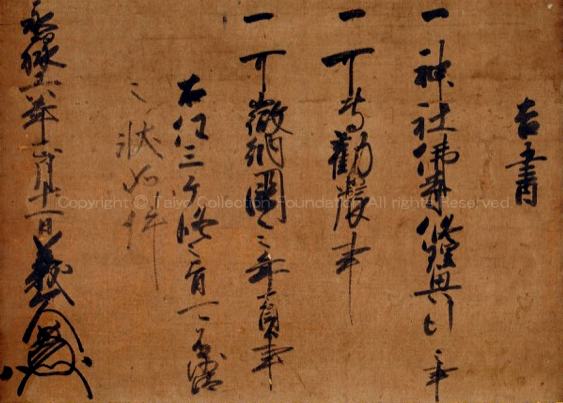 吉書
一 神社佛寺修理興行事
一 可専勧農事
一 可徴納國々年貢事
右任三ケ條之旨可
之状如件
永禄六年正月十一日 義
Copyright © Taiyo Collection Foundation All rights Reserved